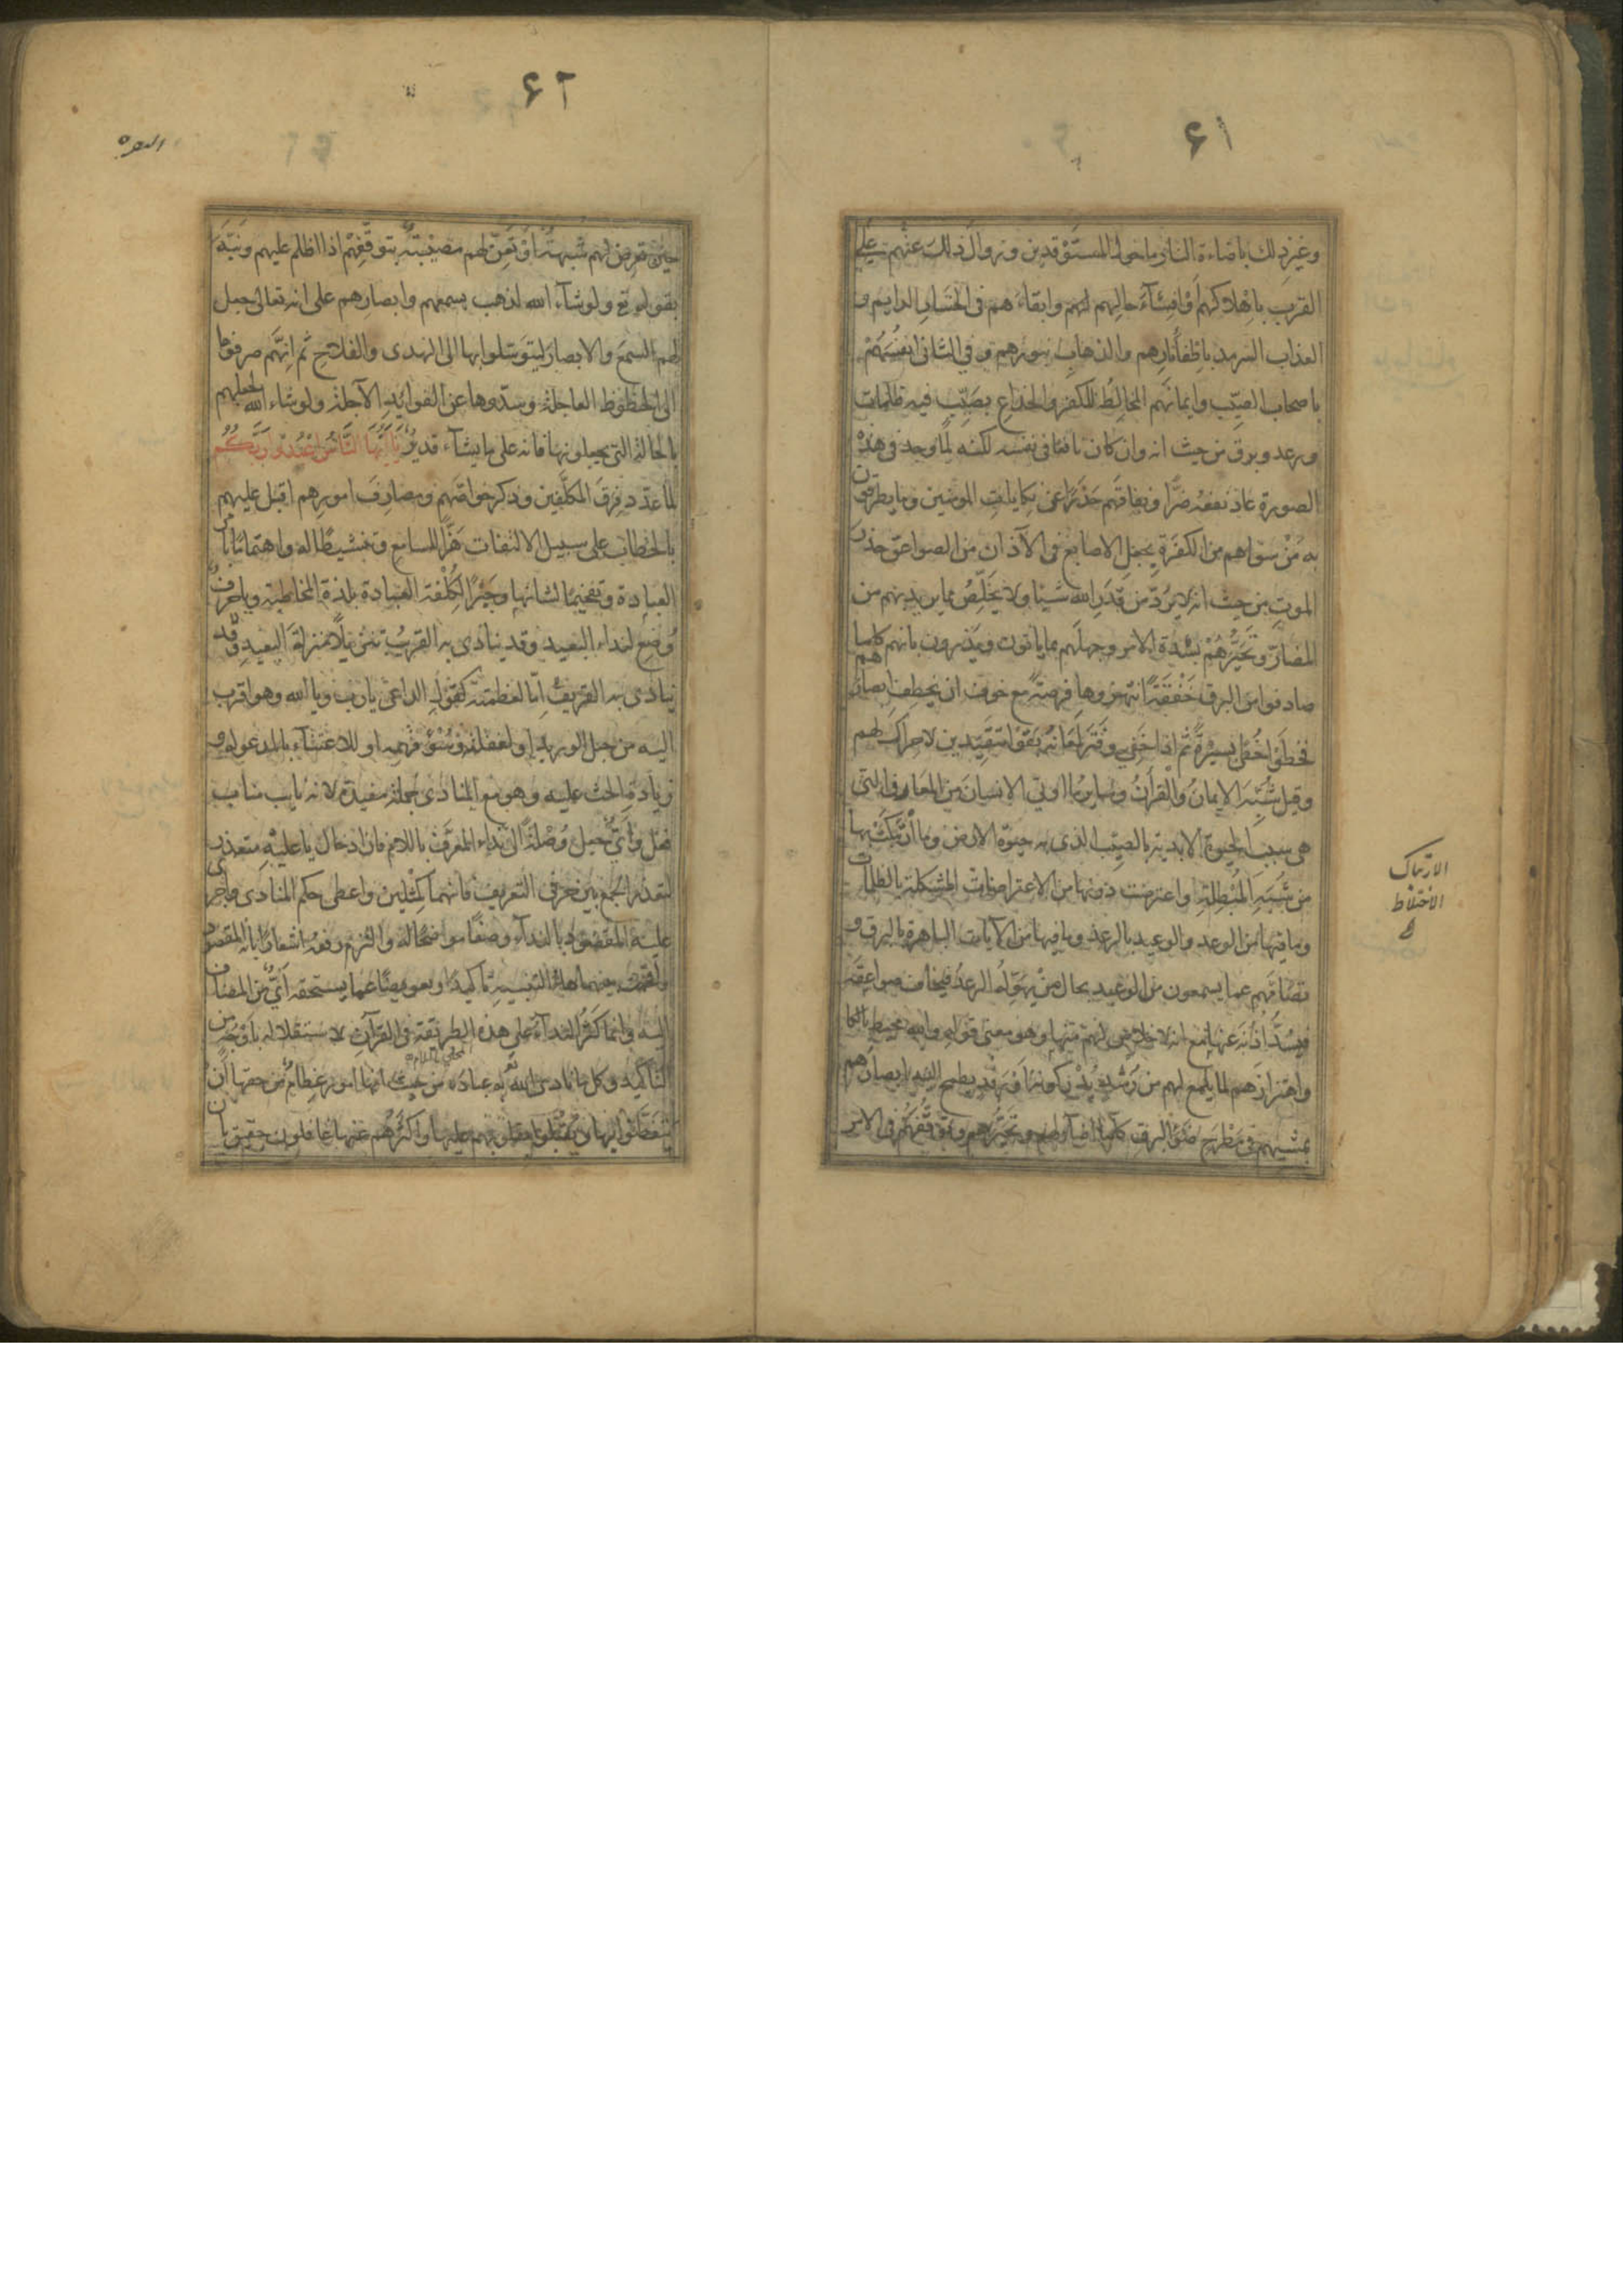 ٦١
وغير ذلك باضاءة النار ما حول المستوقدين وزوال ذلك عنهم على
القرب باهلاكهم وافشاء حالهم لهم وابقاءهم فى الخسار الدايم و
العذاب السرمد باطفاء نارهم والذهاب بنورهم و فى الثانى انفسهم
باصحاب الصيّب وايمانهم المخالط للكفر والخداع بصيّب فيه ظلمات
ورعد وبرق من حيث انه وان كان نافعا فى نفسه لكنه لما وجد فى هذه
الصورة عاد نفعه ضرّا ونفاقهم حذرا عن نكايات المومنين وما يطرقون
به من سواهم من الكفرة بجعل الاصابع فى الآذان من الصواعق حذر
الموت من حيث انه لا يرد من قدر الله شيئا ولا يخلص مما يريد بهم من
المضارّ وتحيّرهم بشدة الامر وجهلهم بما ياتون ويذرون بانهم كلما
صادفوا من البرق خفقة انتهزوها فرصة مع خوف ان يخطف ابصارهم
فخطوا خطى يسيرة ثم اذا خفى وفتر لمعانه بقوا متقيّدين لا حراك لهم
وقيل شبّه الايمان والقرآن وساير ما اوتى الانسان من المعارف التى
هى سبب الحيوة الابدية بالصيّب الذى به حيوة الارض وما ارتبكت بها
من شبه المبطلة واعترضت دونها من الاعتراضات المشكلة بالظلمات
وما فيها من الوعد والوعيد بالرعد وما فيها من الآيات الباهرة بالبرق و
تصامّهم عما يسمعون من الوعيد بحال من يهوّله الرعد فيخاف صواعقه
فيسدّ اذنه عنها مع انه لا خلاص لهم منها وهو معنى قوله والله محيط بالكا
واهتزازهم لما يلمع لهم من رشد يدركونه او رفد يطمح اليه ابصارهم
بمشيهم فى مطرح ضوء البرق كلما اضاء لهم وتحيّرهم وتوقفهم فى الامر
الارتباك
الاختلاط
٦٢
البقره
حين تعرض لهم شبهة او تعنّ لهم مصيبة بتوقفهم اذا اظلم عليهم ونبّه
بقوله تع ولو شآء الله لذهب بسمعهم وابصارهم على انه تعالى جعل
لهم السمع والابصار ليتوسلوا بها الى الهدى والفلاح ثم انهم صرفوها
الى الحظوظ العاجلة وسدّوها عن الفوايد الآجلة ولو شاء الله لجعلهم
بالحالة التى يجعلونها فانه على ما يشآء قدير يا ايها الناس اعبدوا ربكم
لما عدد فرق المكلفين وذكر خواصهم ومصارف امورهم اقبل عليهم
بالخطاب على سبيل الالتفات هزّا للسامع وتنشيطا له واهتماما بامر
العبادة وتفخيما لشانها وجبرا لكلفة العبادة بلذة المخاطبة ويا حرف
وضع لنداء البعيد وقد ينادى به القريب تنزيلا منزلة البعيد وقد
ينادى به القريب اما لعظمته كقول الداعى يا رب ويا الله وهو اقرب
اليه من حبل الوريد او لغفلته وسوء فهمه او للاعتناء بالمدعو له و
زيادة الحث عليه وهو مع المنادى جملة مفيدة لانه نايب مناب
فعل واىّ جعل وصلة الى نداء المعرف باللام فان ادخال يا عليه متعذر
لتعذر الجمع بين حرفى التعريف فانهما كمثلين واعطى حكم المنادى واجرى
عليه المقصود بالندآء وصفا موضحا له والتزم رفعه اشعارا بانه المقصود
واقحمت بينهما هاء التنبيه تاكيدا وتعويضا عما يستحقه اىّ من المضاف
اليه وانما كثر الندآء على هذه الطريقة فى القرآن لاستقلاله باوجه من
التاكيد وكل ما نادى الله له عباده من حيث انها امور عظام من حقها ان
يتفطنوا لها ويقبلوا بقلوبهم عليها واكثرهم عنها غافلون حقيق بان